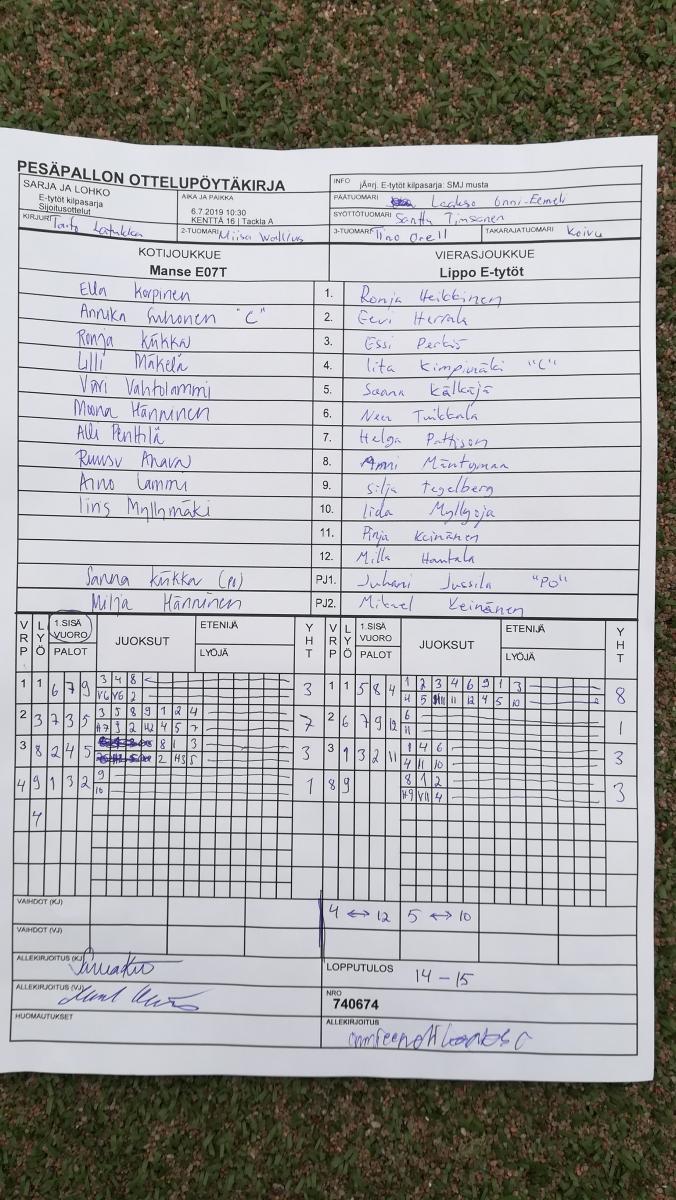 PESÄPALLON OTTELUPÖYTÄKIRJA
SARJA JA LOHKO
E-tytöt kilpasarja
Sijoitusottelut
AIKA JA PAIKKA
6.7.2019 10:30
KENTTÄ 16 | Tackla A
INFO jÄnrj. E-tytöt kilpasarja: SMJ musta
PÄÄTUOMARI Laakso Onni-Eemeli
SYÖTTÖTUOMARI Santtu Timsanen
KIRJURI Taito
2-TUOMARI Miisa Wallius
3-TUOMARI Tino Orell
TAKARAJATUOMARI Koivu
KOTIJOUKKUE
Manse E07T
VIERASJOUKKUE
Lippo E-tytöt
Ella Korpinen 1. Ronja Heikkinen
Annika Suhonen "C" 2. Eevi Herrala
Ronja Kiikka 3. Essi
Lilli Mäkelä 4. Iita Kimpimäki "C"
Vahtolammi 5. Saana Kälkäjä
Moona Hänninen 6. Neea Tuikkala
Alli Penttilä 7. Helga Pattison
Ruusu Ahava 8. Anni Mäntymaa
Aino Lammi 9. Silja Tegelberg
Iiris Myllymäki 10. Iida Myllyoja
11. Pinja Keinänen
12. Milla Hautala
Sanna Kiikka PJ1. Juhani Jussila "PO"
Milja Hänninen PJ2. Mikael Keinänen
VRP LYÖ 1.SISÄ VUORO PALOT JUOKSUT ETENIJÄ LYÖJÄ YHT VRP LYÖ 1.SISÄ VUORO PALOT JUOKSUT ETENIJÄ LYÖJÄ YHT
3 4 8 1 2 3 4 6 9 1 3
1 1 6 7 9 3 1 1 5 8 4 8
V6 V6 2 4 5 11 11 12 4 5 10
3 5 8 9 1 2 4 6
2 3 7 3 5 7 2 6 7 9 12 1
H7 9 2 H2 4 5 7 11
8 1 3 1 4 6
3 8 2 4 5 3 3 1 3 2 11 3
2 H3 5 4 11 10
9 8 1 2
4 9 1 3 2 1 8 9 3
10 H9 V11 4
4
VAIHDOT (KJ) 4 ↔ 12 5 ↔ 10
VAIHDOT (VJ)
ALLEKIRJOITUS (KJ)
LOPPUTULOS 14 - 15
ALLEKIRJOITUS (VJ)
NRO
740674
HUOMAUTUKSET
ALLEKIRJOITUS